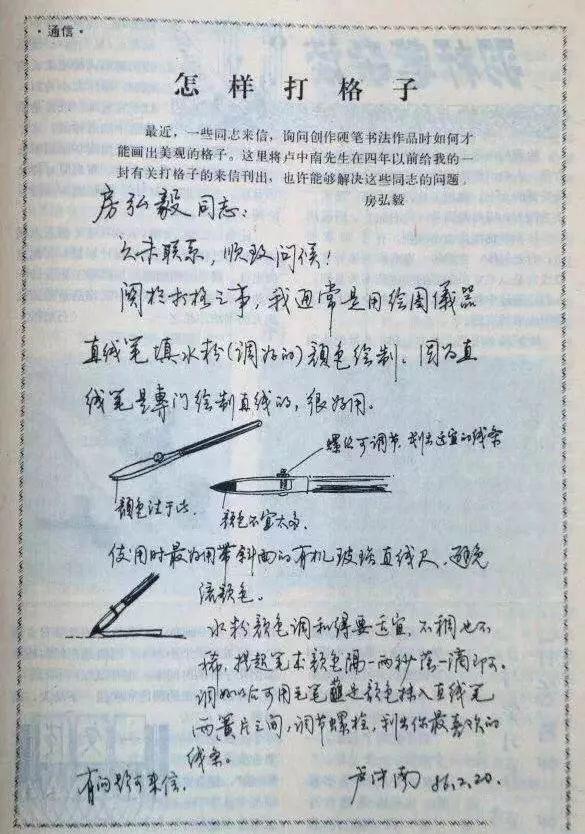 ·通信·
怎样打格子
最近，一些同志来信，询问创作硬笔书法作品时如何才
能画出美观的格子。这里将卢中南先生在四年以前给我的一
封有关打格子的来信刊出，也许能够解决这些同志的问题。
房弘毅
房弘毅同志：
久未联系，顺致问候！
関於打格之事，我通常是用绘图儀器
直线笔填水粉(调好的)顏色绘制。因为直
线笔是專门绘制直线的，很好用。
螺丝可调节，划出适宜的线条
顏色注于此.
顏色不宜太多.
使用时最好用带斜面的有机玻璃直线尺，避免
流顏色。
水粉顏色调和得要适宜，不稠也不
稀，提起笔来顏色隔一两秒落一滴即可。
调好以后可用毛笔蘸起顏色抹入直线笔
两簧片之间，调节螺栓，划出你最喜欢的
线条。
有问题可来信.
卢中南 86.2.20.